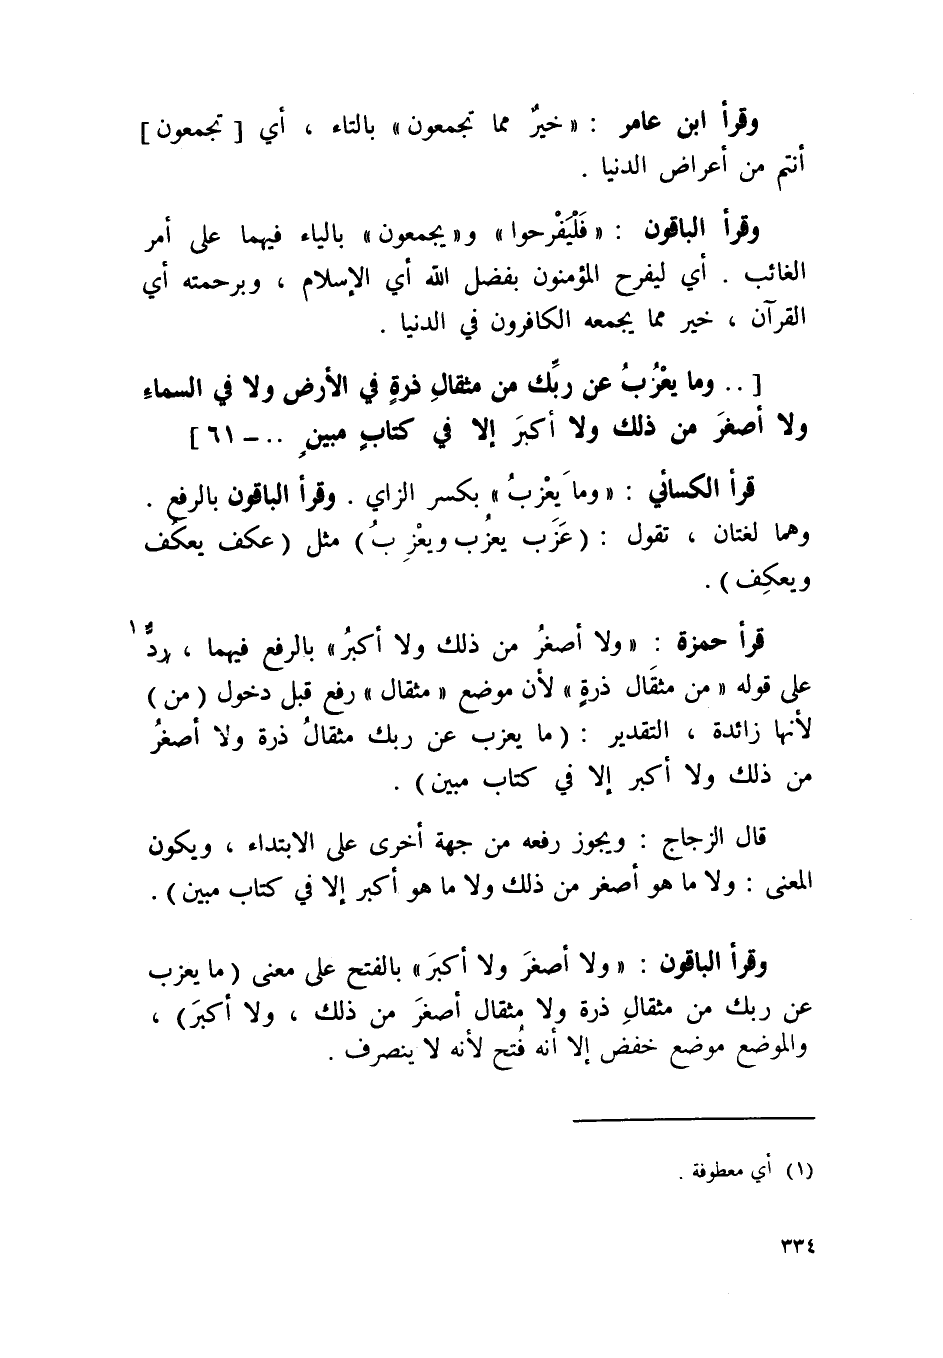 وقرأ ابن عامر : « خيرٌ مما تجمعون » بالتاء ، أي [ تجمعون ]
أنتم من أعراض الدنيا .
وقرأ الباقون : « فَلْيَفْرحوا » و « يجمعون » بالياء فيهما على أمر
الغائب . أي ليفرح المؤمنون بفضل الله أي الإسلام ، وبرحمته أي
القرآن ، خير مما يجمعه الكافرون في الدنيا .
[ .. وما يعْزُبُ عن ربِّك من مثقالِ ذرةٍ في الأرض ولا في السماء
ولا أصغرَ من ذلك ولا أكبرَ إلا في كتابٍ مبينٍ .. – ٦١ ]
قرأ الكسائي : « وما يَعْزبُ » بكسر الزاي . وقرأ الباقون بالرفع .
وهما لغتان ، تقول : ( عَزَب يعزُب ويعْزِبُ ) مثل ( عكف يعكُف
ويعكِف ) .
قرأ حمزة : « ولا أصغرُ من ذلك ولا أكبرُ » بالرفع فيهما ، ردٌّ ١
على قوله « من مثقَال ذرةٍ » لأن موضع « مثقال » رفع قبل دخول ( من )
لأنها زائدة ، التقدير : ( ما يعزب عن ربك مثقالُ ذرة ولا أصغرُ
من ذلك ولا أكبر إلا في كتاب مبين ) .
قال الزجاج : ويجوز رفعه من جهة أخرى على الابتداء ، ويكون
المعنى : ولا ما هو أصغر من ذلك ولا ما هو أكبر إلا في كتاب مبين ) .
وقرأ الباقون : « ولا أصغرَ ولا أكبرَ » بالفتح على معنى ( ما يعزب
عن ربك من مثقالِ ذرة ولا مثقال أصغرَ من ذلك ، ولا أكبرَ ) ،
والموضع موضع خفض إلا أنه فُتح لأنه لا ينصرف .
(١) أي معطوفة .
٣٣٤